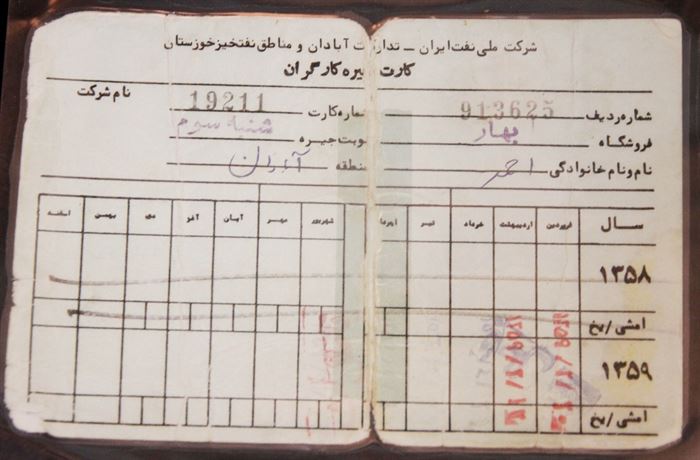 شرکت ملی نفت ایران ـ تدارکات آبادان و مناطق نفتخیز خوزستان
کارت جیره کارگران
شماره ردیف 913625 شماره کارت 19211 نام شرکت
فروشگاه بهار نوبت جیره شنبه سوم
نام و نام خانوادگی احمد منطقه
سال فروردین اردیبهشت خرداد تیر امرداد شهریور مهر آبان آذر دی بهمن اسفند
۱۳۵۸
امشی / یخ
۱۳۵۹
امشی / یخ